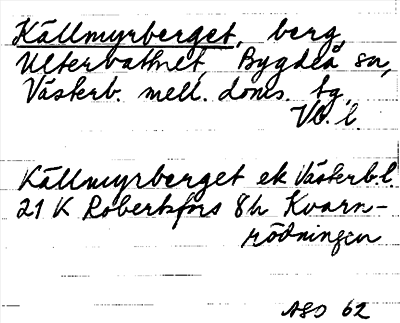 Källmyrberget, berg,
Ulterbattnet, Bygdeå sn,
Västerb. mell. doms. tg,
Vb. l
Källmyrberget ek Västerb l.
21 K Robertsfors 8h Kvarn-
rödningen
ASO 62